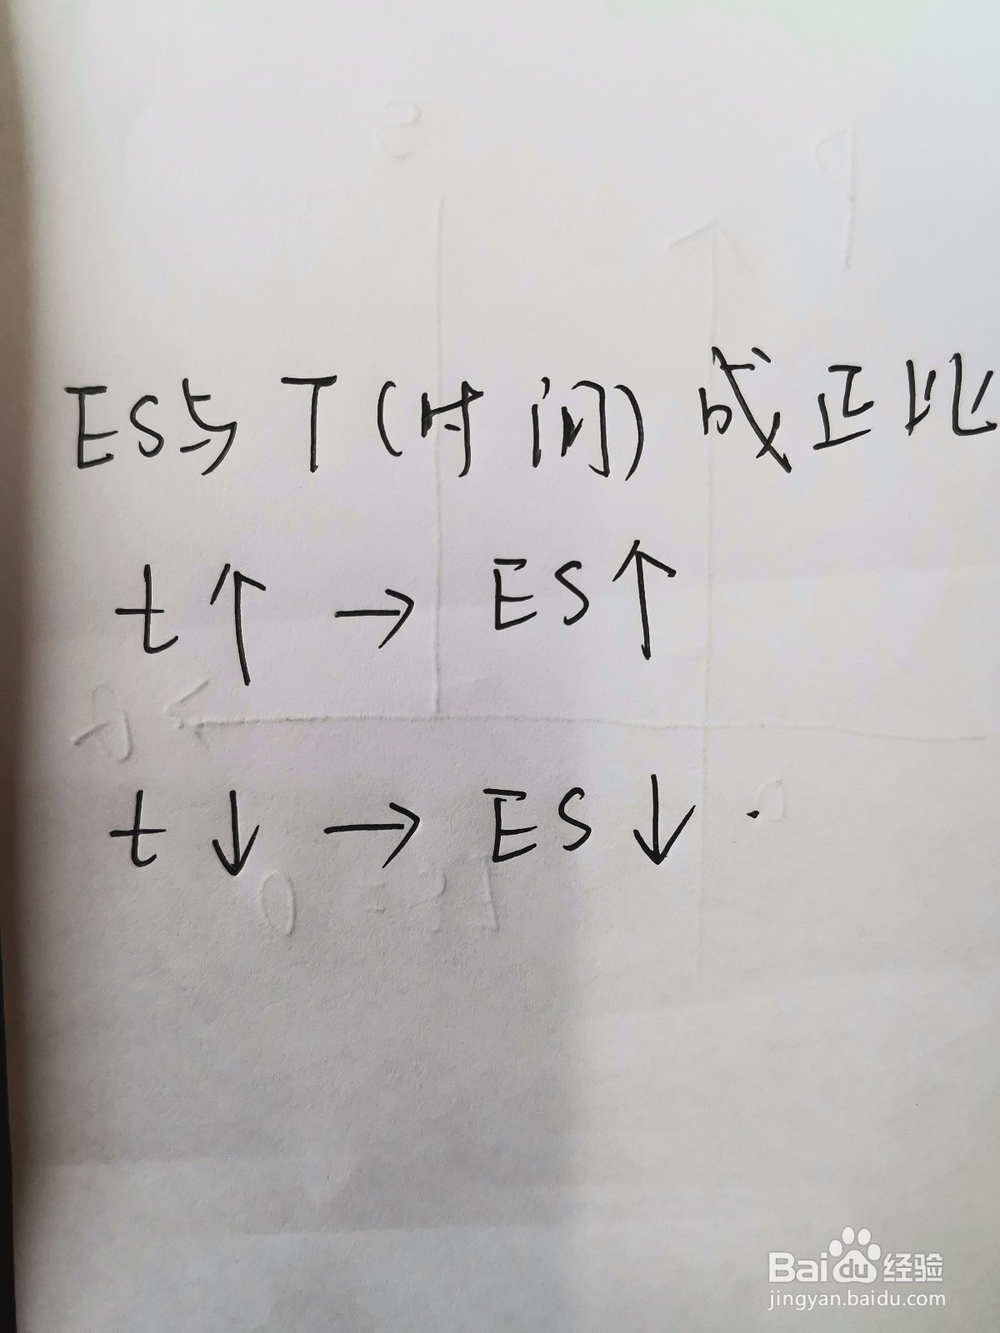 ES与T(时间)成正比
t↑→ES↑
t↓→ES↓.
Baidu经验
jingyan.baidu.com